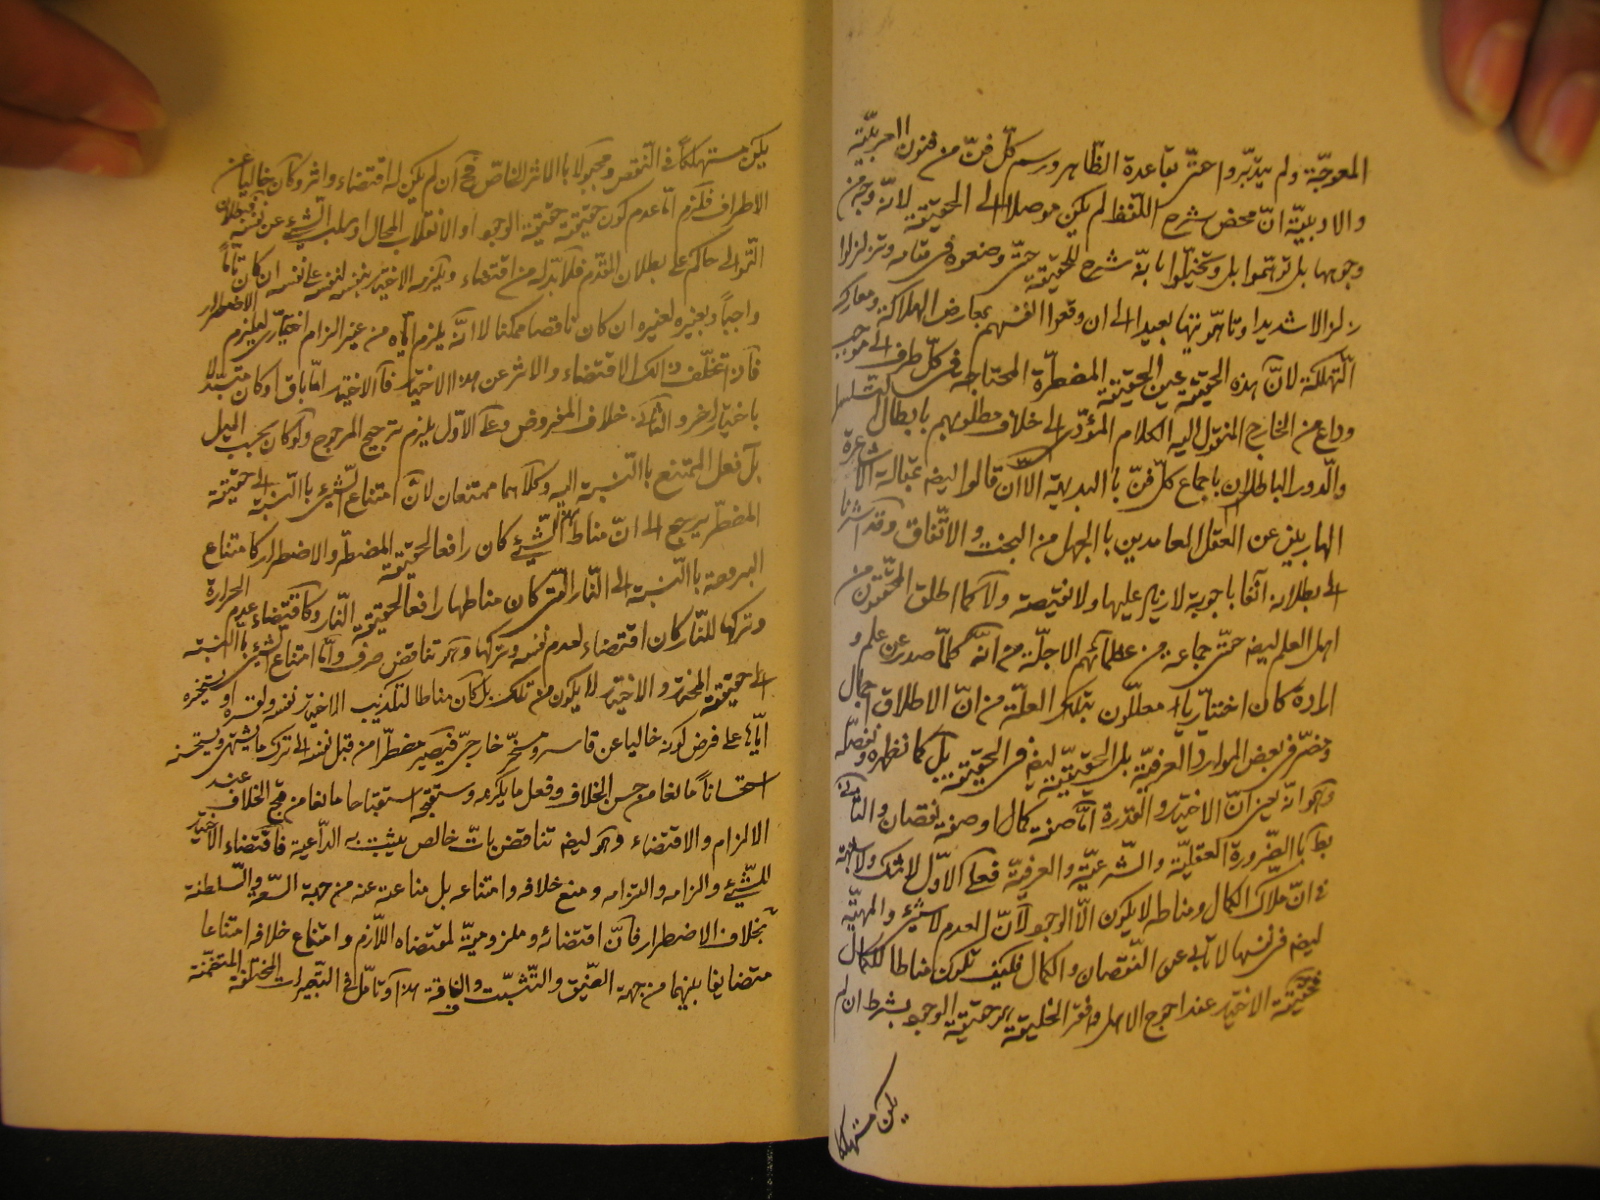 المعوجّة ولم يتدبّروا اعنى بقاعدة الظّاهر ورسم كلّ فنّ من فنون العربيّة
والادبيّة انّ محض شرح اللّفظ لم يكن موصلا الى الحقيقة لانّه وجه من
وجوهها بل توهّموا بل وتخيّلوا بانّه شرح للحقيقة حتّى وضعوه فى مقامه وتزلزلوا
زلزالا شديدا وتاهوا تيها بعيدا الى ان وقعوا انفسهم بمعارض الهلاكة ومعارك
التّهلكة لانّ هذه الحقيقة عين الحقيقة المضطرّة المحتاجة فى كلّ طرف الى موجب
وداع عن الخارج المنقول اليه الكلام المؤدّى الى خلاف مطلوبهم بابطال التّسلسل
والدّور الباطلان باجماع كلّ فنّ بالبديهة الّا ان قالوا ايضا بمقالة الاشاعرة
الهاربين عن العقل العامدين بالجهل من البخت والاتّفاق وقد اشرنا
الى بطلانه آنفا باجوبة لا يزيد عليها ولا نقيصة ولا كما اطلق المحقّقون من
اهل العلم ايضا حتّى جماعة من علمائهم الاجلّة من انّه كلّما صدر عن علم و
ارادة كان اختياريّا معلّلون بتلك العلّة من انّ الاطلاق اجمال
فى بعض الموارد العرفيّة بل الحقيقيّة ايضا فى الحقيقة بل كما نظهره ونفصّله
وهو انّه يعنى انّ الاختيار والقدرة امّا صفة كمال او صفة نقصان والثّانى
بط بالضّرورة العقليّة والشّرعيّة والعرفيّة فعلى الاوّل لا شك ولا شبهة
فى انّ ملاك الكمال ومناطه لا يكون الّا الوجود لانّ العدم لا شىء والمهيّة
ايضا فى نفسها لا تابى عن النّقصان والكمال فكيف تكون مناطا للكمال
فحقيقة الاختيار عند احوج الاهل وافقر الخليقة هى حقيقة الوجود بشرط ان لم
يكن مستهلكا
يكن مستهلكاً فى النّقص ومجبولا بالاثر النّاقص فح ان لم يكن له اقتضاء واثر وكان خاليا عن
الاطراف فلزم امّا عدم كون حقيقته حقيقة الوجود او الانقلاب المحال او سلب الشّىء عن نفسه فبطلان
التّوالى حاكم على بطلان المقدّم فلا بدّ له من اقتضاء ويلزمه الاختيار بنفسه لنفسه على نفسه ان كان تامّاً
واجباً وبغيره لغيره ان كان ناقصا ممكنا لا انّه يلزم ايّاه من عين الزام اختيارىّ لعلزم الاضطرار
فاذا تخلّف ذلك الاقتضاء والاثر عن هذا الاختيار فالاختيار امّا باق او كان متبدّلا
باختيار اخر والثّانى خلاف المفروض وعلى الاوّل يلزم ترجيح المرجوح ولو كان بحسب الميل
بل فعل الممتنع بالنّسبة اليه وكلاهما ممتنعان لانّ امتناع الشّىء بالنّسبة الى حقيقة
المضطرّ يرجع الى انّ مناط هذا الشّىء كان رافعا لحقيقة المضطرّ والاضطرار كامتناع
البرودة بالنّسبة الى النّار الّتى كان مناطها رافعا لحقيقة النّار وكاقتضاء عدم الحرارة
وتركها للنّار كان اقتضاء لعدم نفسه وتركها وهو تناقض صرف وامّا امتناع الشّىء بالنّسبة
الى حقيقة المختار والاختيار لا يكون من تلك بل كان مناطا لتكذيب الاختيار نفسه ولقسره او تسخيره
ايّاها على فرض كونه خاليا عن قاسر ومسخّر خارجىّ فيصير مضطرّا من قبل نفسه الى ترك ما يشتهى ويستحسنه
استحساناً مانعا من حسن الخلاف وفعل ما يكرهه ويستقبح استقباحا مانعا من قبح الخلاف عند
الالزام والاقتضاء وهو ايضا تناقض باتّ خالص يثبت به الدّاعية فاقتضاء الاختيار
للشّىء والزامه والتزامه ومنع خلافه وامتناعه بل مناعته عنه من جهة السّعة والسّلطنة
بخلاف الاضطرار فانّ اقتضائه وملزوميّة لمقتضاه اللّازم وامتناع خلافه امتناعا
متضايفا بينهما من جهة الضّيق والتّشبّث والفاقة هذا وتامّل فى التّعبيرات المختلفة المتضمّنة